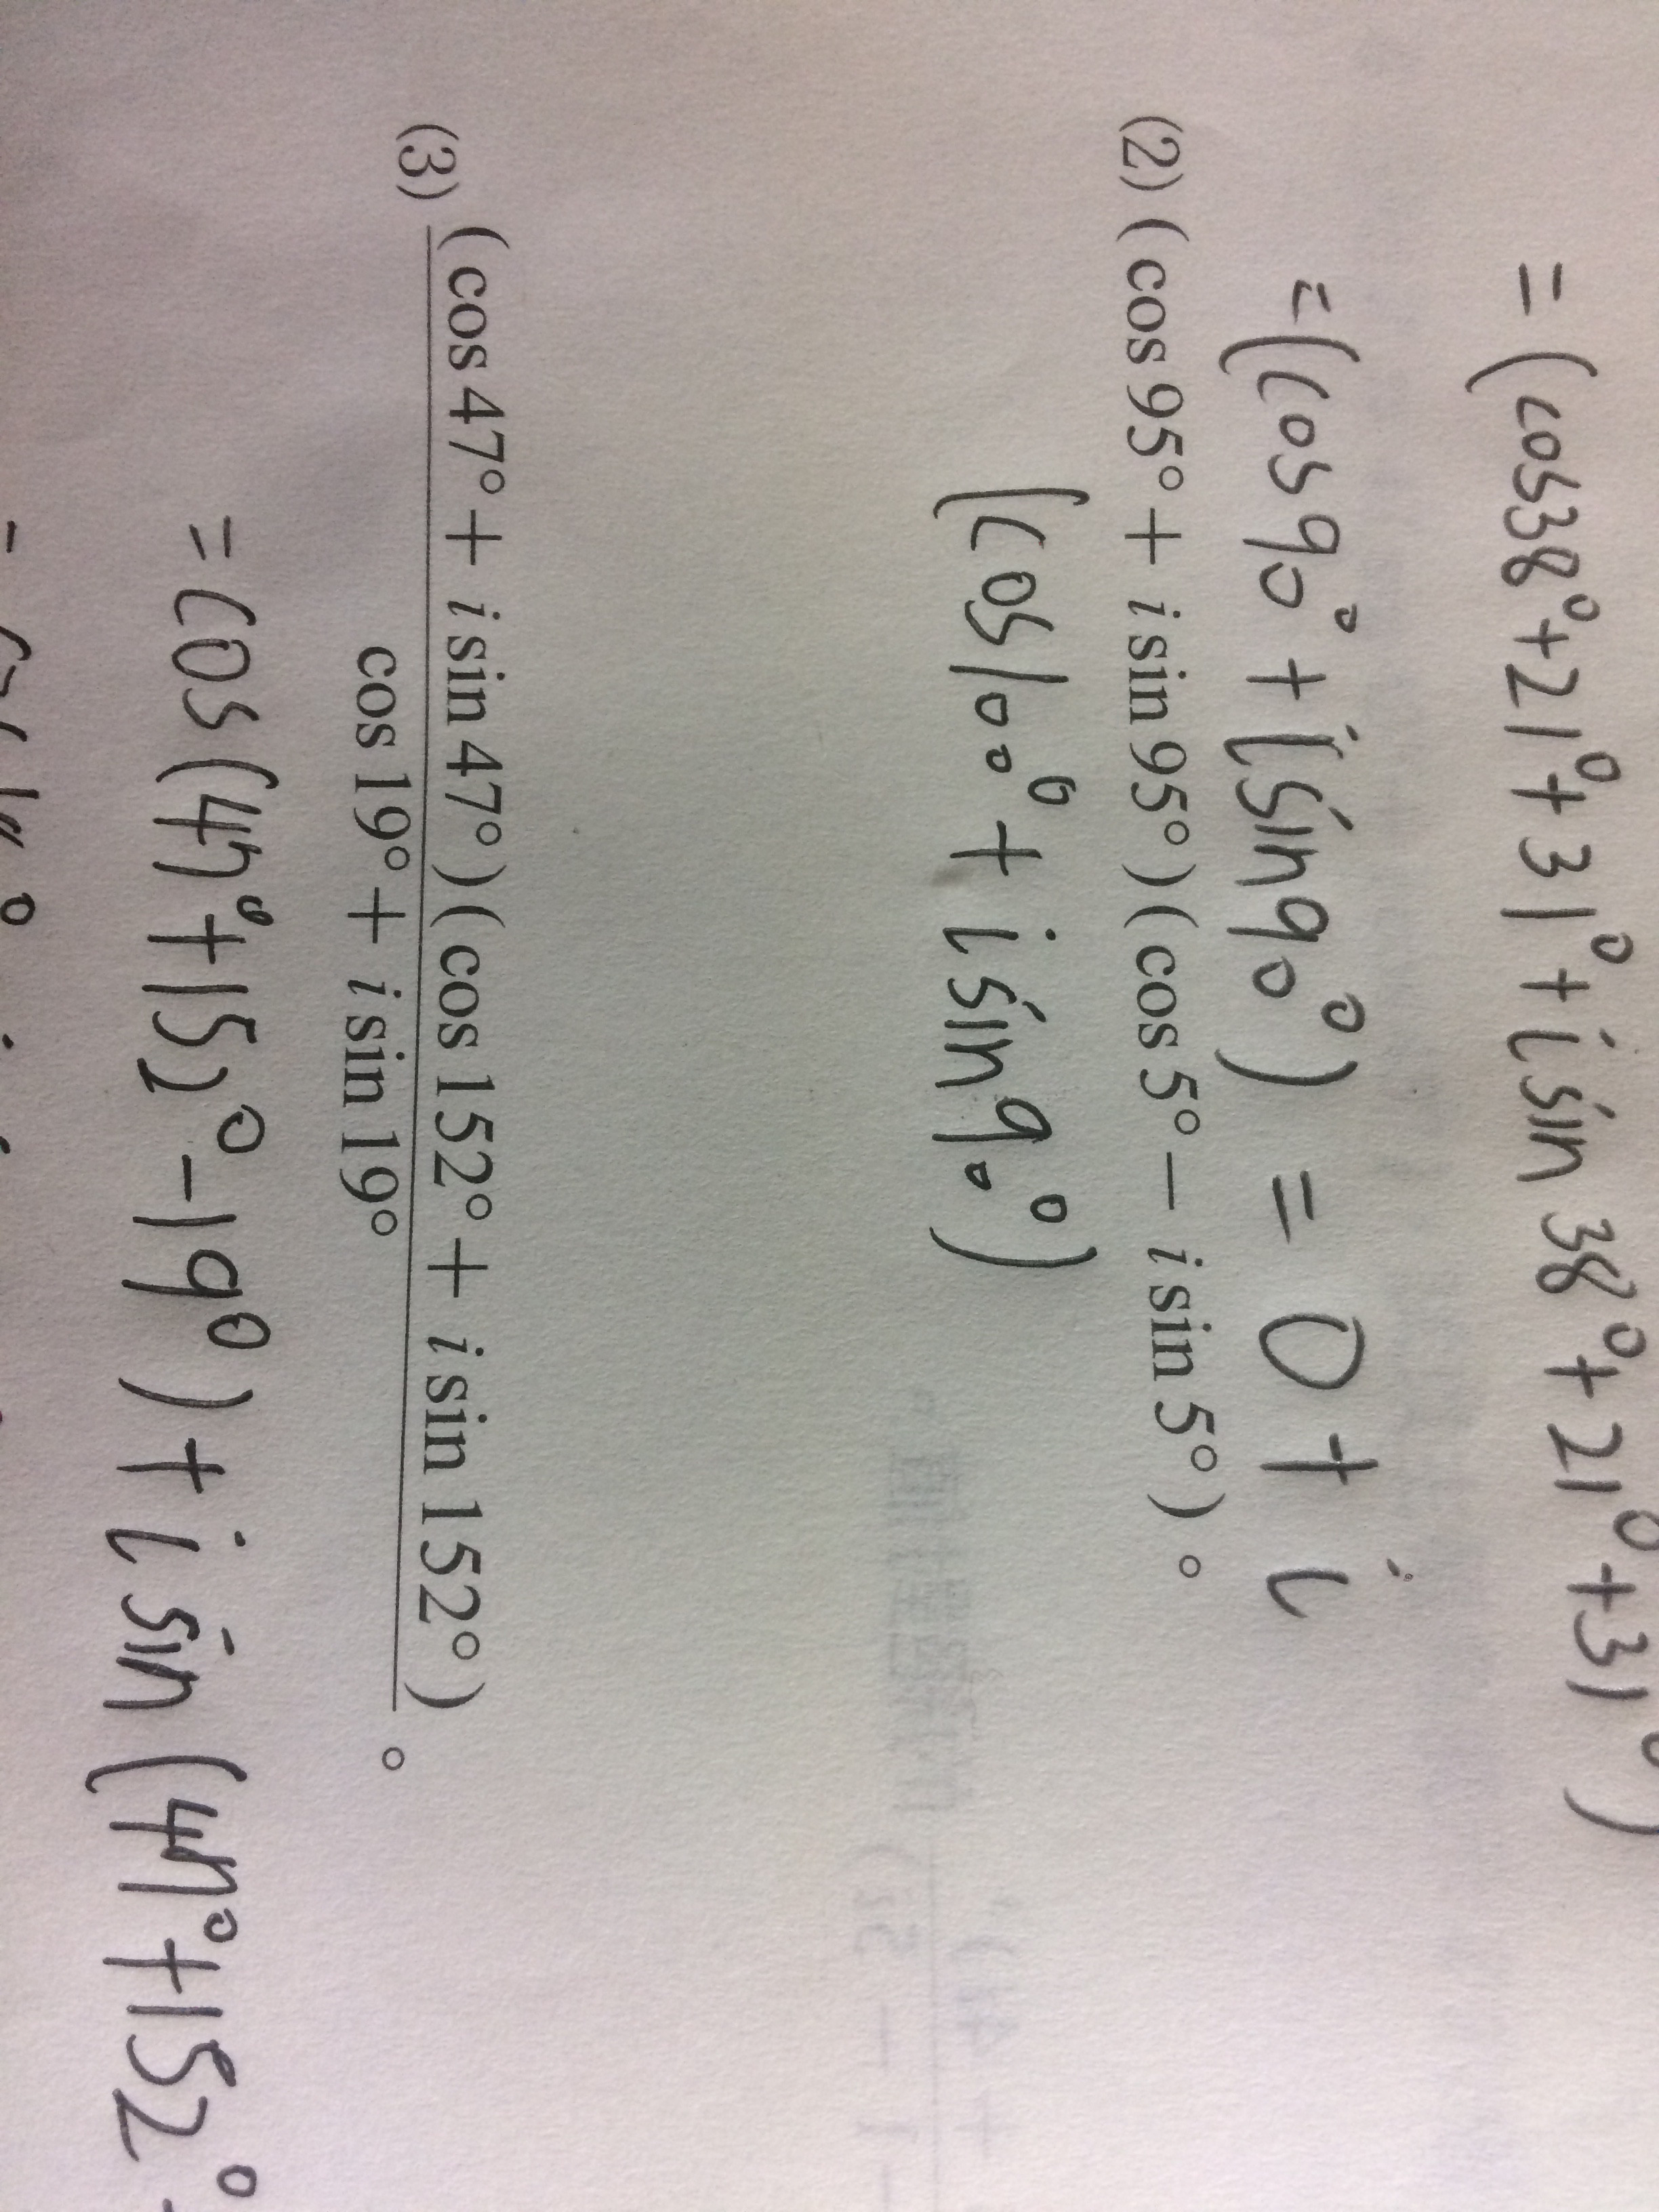 = (cos38°+21°+31°+isin38°+21°+31°)
=(cos90°+isin90°) = 0+i
(2) (cos 95° + i sin 95°)(cos 5° − i sin 5°)。
(cos100°+isin90°)
(3) (cos 47° + i sin 47°)(cos 152° + i sin 152°)
cos 19° + i sin 19° 。
=cos(47°+152°-19°)+isin(47°+152°-